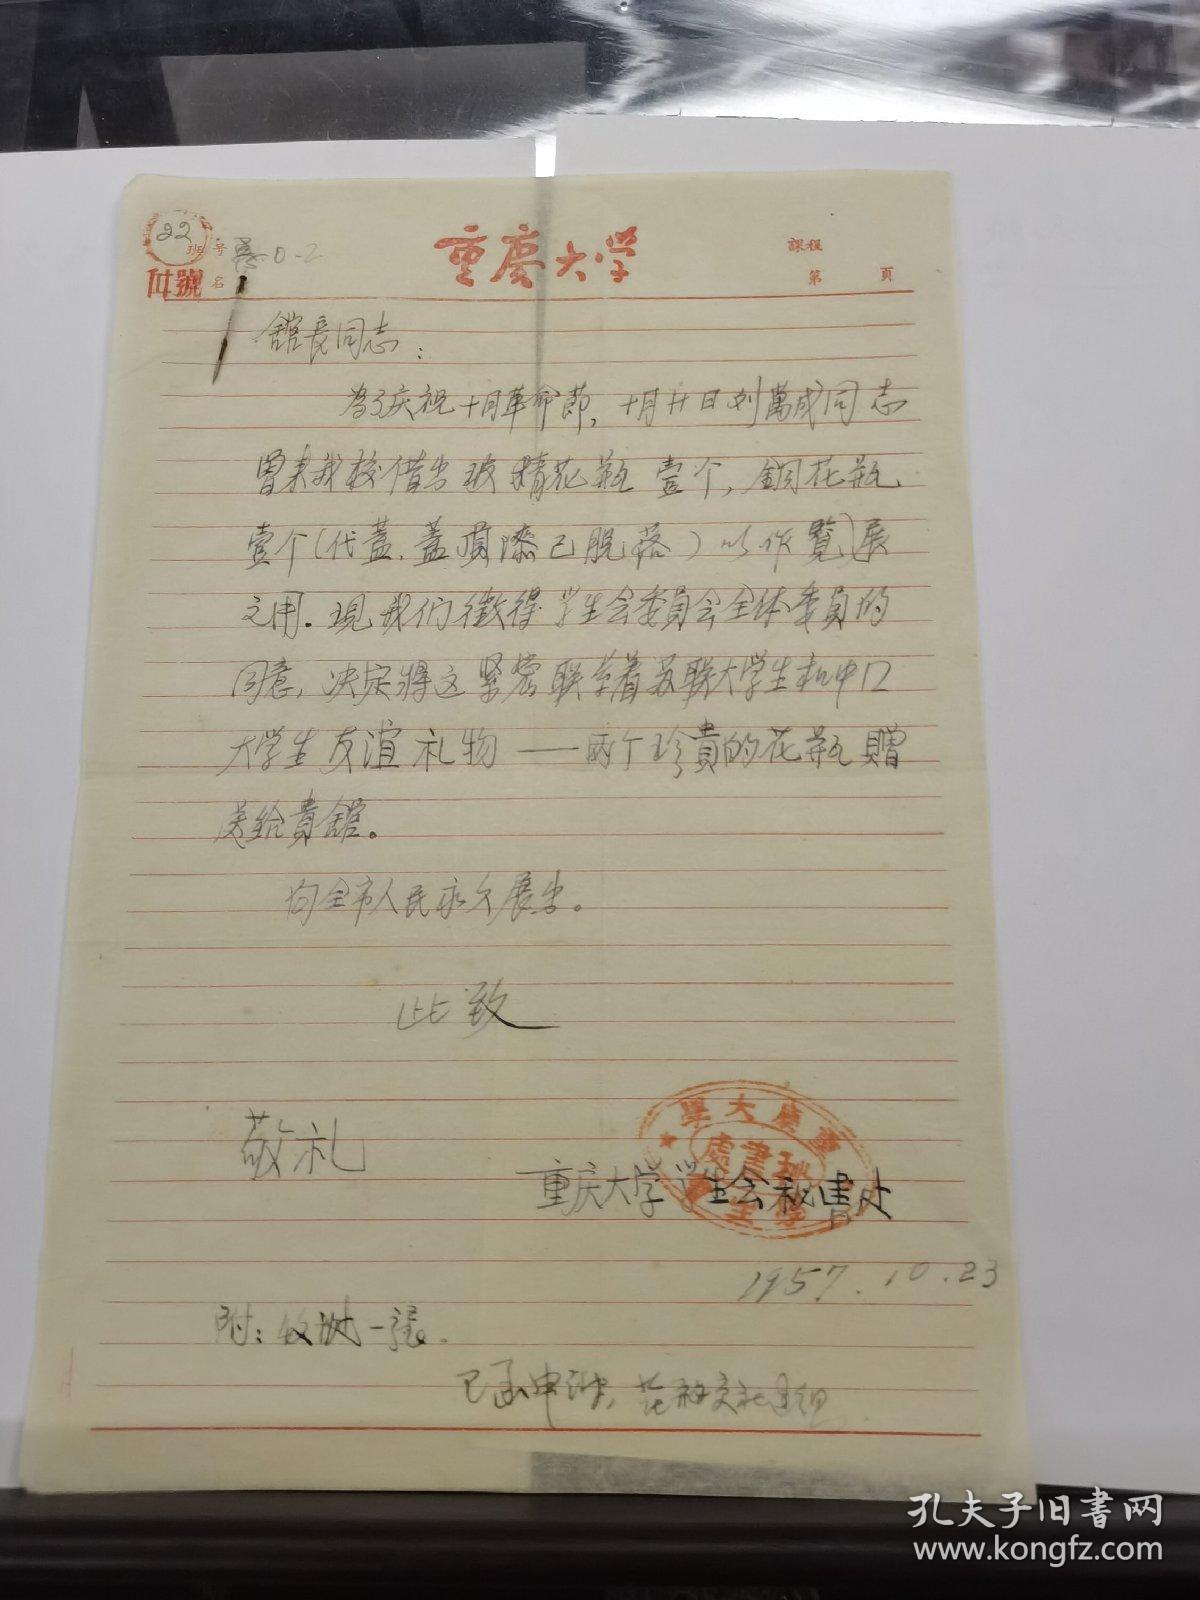 22
班号
付號
名
0-2
重慶大学
課程
第 頁
舘長同志：
為了庆祝十月革命節，十月廿日刘萬成同志
曾来我校借出玻精花瓶壹个，銅花瓶
壹个（代蓋，蓋頂漆已脫落）以作覽展
之用。現我们徵得学生会委員会全体委員的
同意，决定將这緊密联系着苏联大学生和中囗
大学生友谊礼物——兩个珍貴的花瓶贈
送给貴舘。
向全市人民永久展出。
此致
敬礼
重慶大學
秘書處
学生會
重庆大学学生会秘書处
1957.10.23
附：收据一張。
孔夫子旧书网
www.kongfz.com